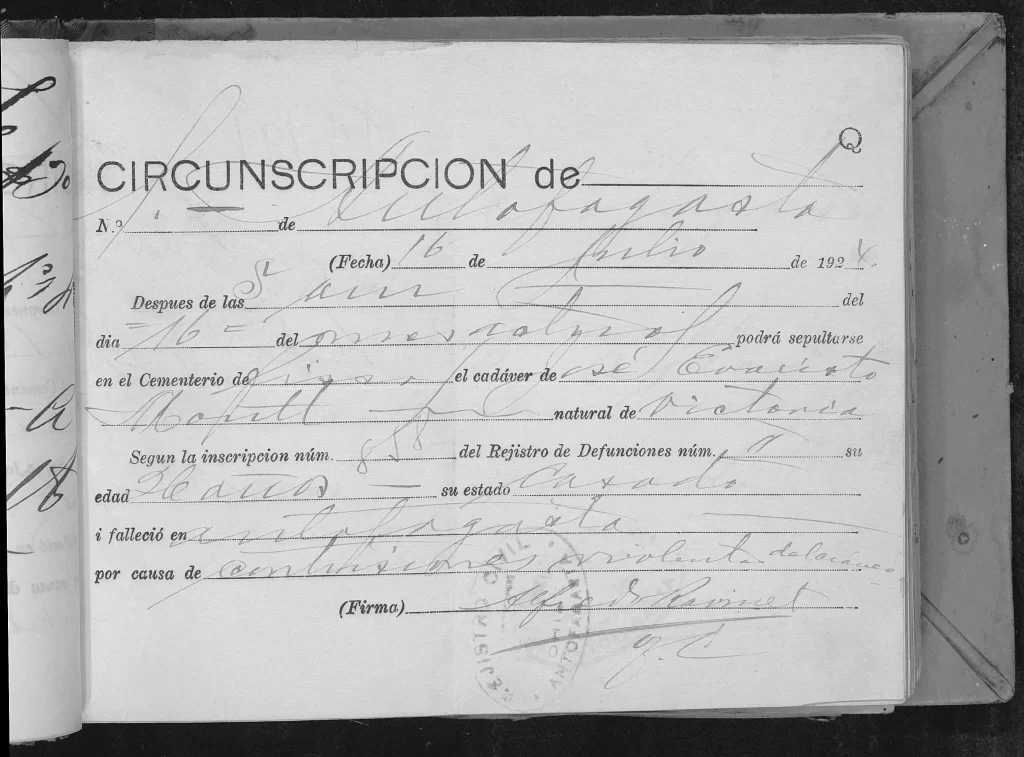 Q
CIRCUNSCRIPCION de
N.º de Antofagasta
(Fecha) 16 de Julio de 1924.
Despues de las 5 am del
dia =16= del mes actual podrá sepultarse
en el Cementerio de el cadáver de José Evaristo
natural de Victoria
Segun la inscripcion núm. 858 del Rejistro de Defunciones núm. " su
edad años su estado Casado
i falleció en antofagasta
por causa de contusiones violentas del cráneo
(Firma) Alfredo Ravinet
REJISTRO CIVIL
CHILE
ANTOFAGASTA